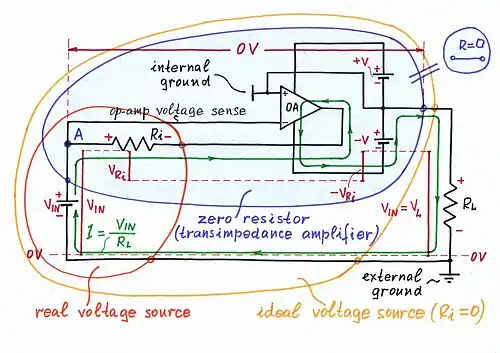 0V
R=0
internal
ground
+V
+
-
+
-
OA
op-amp voltage sense
A
+
Ri
-
VRi
-V
+
-
-VRi
zero resistor
(transimpedance amplifier)
VIN
+
-
VIN
I = VIN / RL
VIN = VL
+
RL
-
0V
0V
external
ground
real voltage source
ideal voltage source (Ri=0)